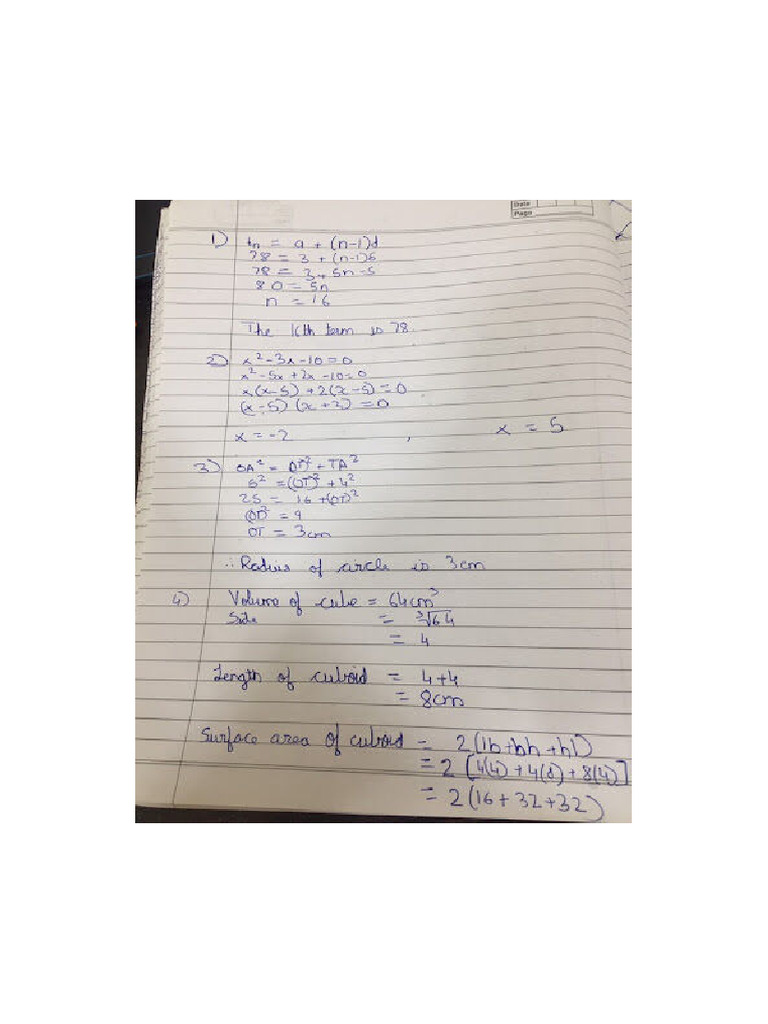 Date
Page
1) tn = a + (n-1)d
78 = 3 + (n-1)5
78 = 3 + 5n - 5
80 = 5n
n = 16
The 16th term is 78.
2) x² - 3x - 10 = 0
x² - 5x + 2x - 10 = 0
x(x - 5) + 2(x - 5) = 0
(x - 5) (x + 2) = 0
x = -2 , x = 5
3) OA² = OT² + TA²
5² = (OT)² + 4²
25 = 16 + (OT)²
(OT)² = 9
OT = 3cm
∴ Radius of circle is 3cm
4) Volume of cube = 64cm³
Side = ³√64
= 4
Length of cuboid = 4+4
= 8cm
Surface area of cuboid = 2(lb + bh + hl)
= 2 [4(4) + 4(8) + 8(4)]
= 2(16 + 32 + 32)